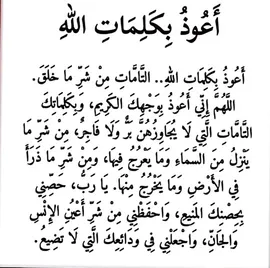 أَعُوذُ بِكَلِمَاتِ اللهِ
أَعُوذُ بِكَلِمَاتِ اللهِ.. التَّامَّاتِ مِنْ شَرِّ مَا خَلَقَ.
اللَّهُمَّ إِنِّي أَعُوذُ بِوَجْهِكَ الكَرِيمِ، وَبِكَلِمَاتِكَ
التَّامَّاتِ الَّتِي لَا يُجَاوِزُهُنَّ بَرٌّ وَلَا فَاجِرٌ، مِنْ شَرِّ مَا
يَنْزِلُ مِنَ السَّمَاءِ وَمَا يَعْرُجُ فِيهَا، وَمِنْ شَرِّ مَا ذَرَأَ
فِي الأَرْضِ وَمَا يَخْرُجُ مِنْهَا. يَا رَبُّ، حَصِّنِّي
بِحِصْنِكَ المَنِيعِ، وَاحْفَظْنِي مِنْ شَرِّ أَعْيُنِ الإِنْسِ
وَالجَانِّ، وَاجْعَلْنِي فِي وَدَائِعِكَ الَّتِي لَا تَضِيعُ.